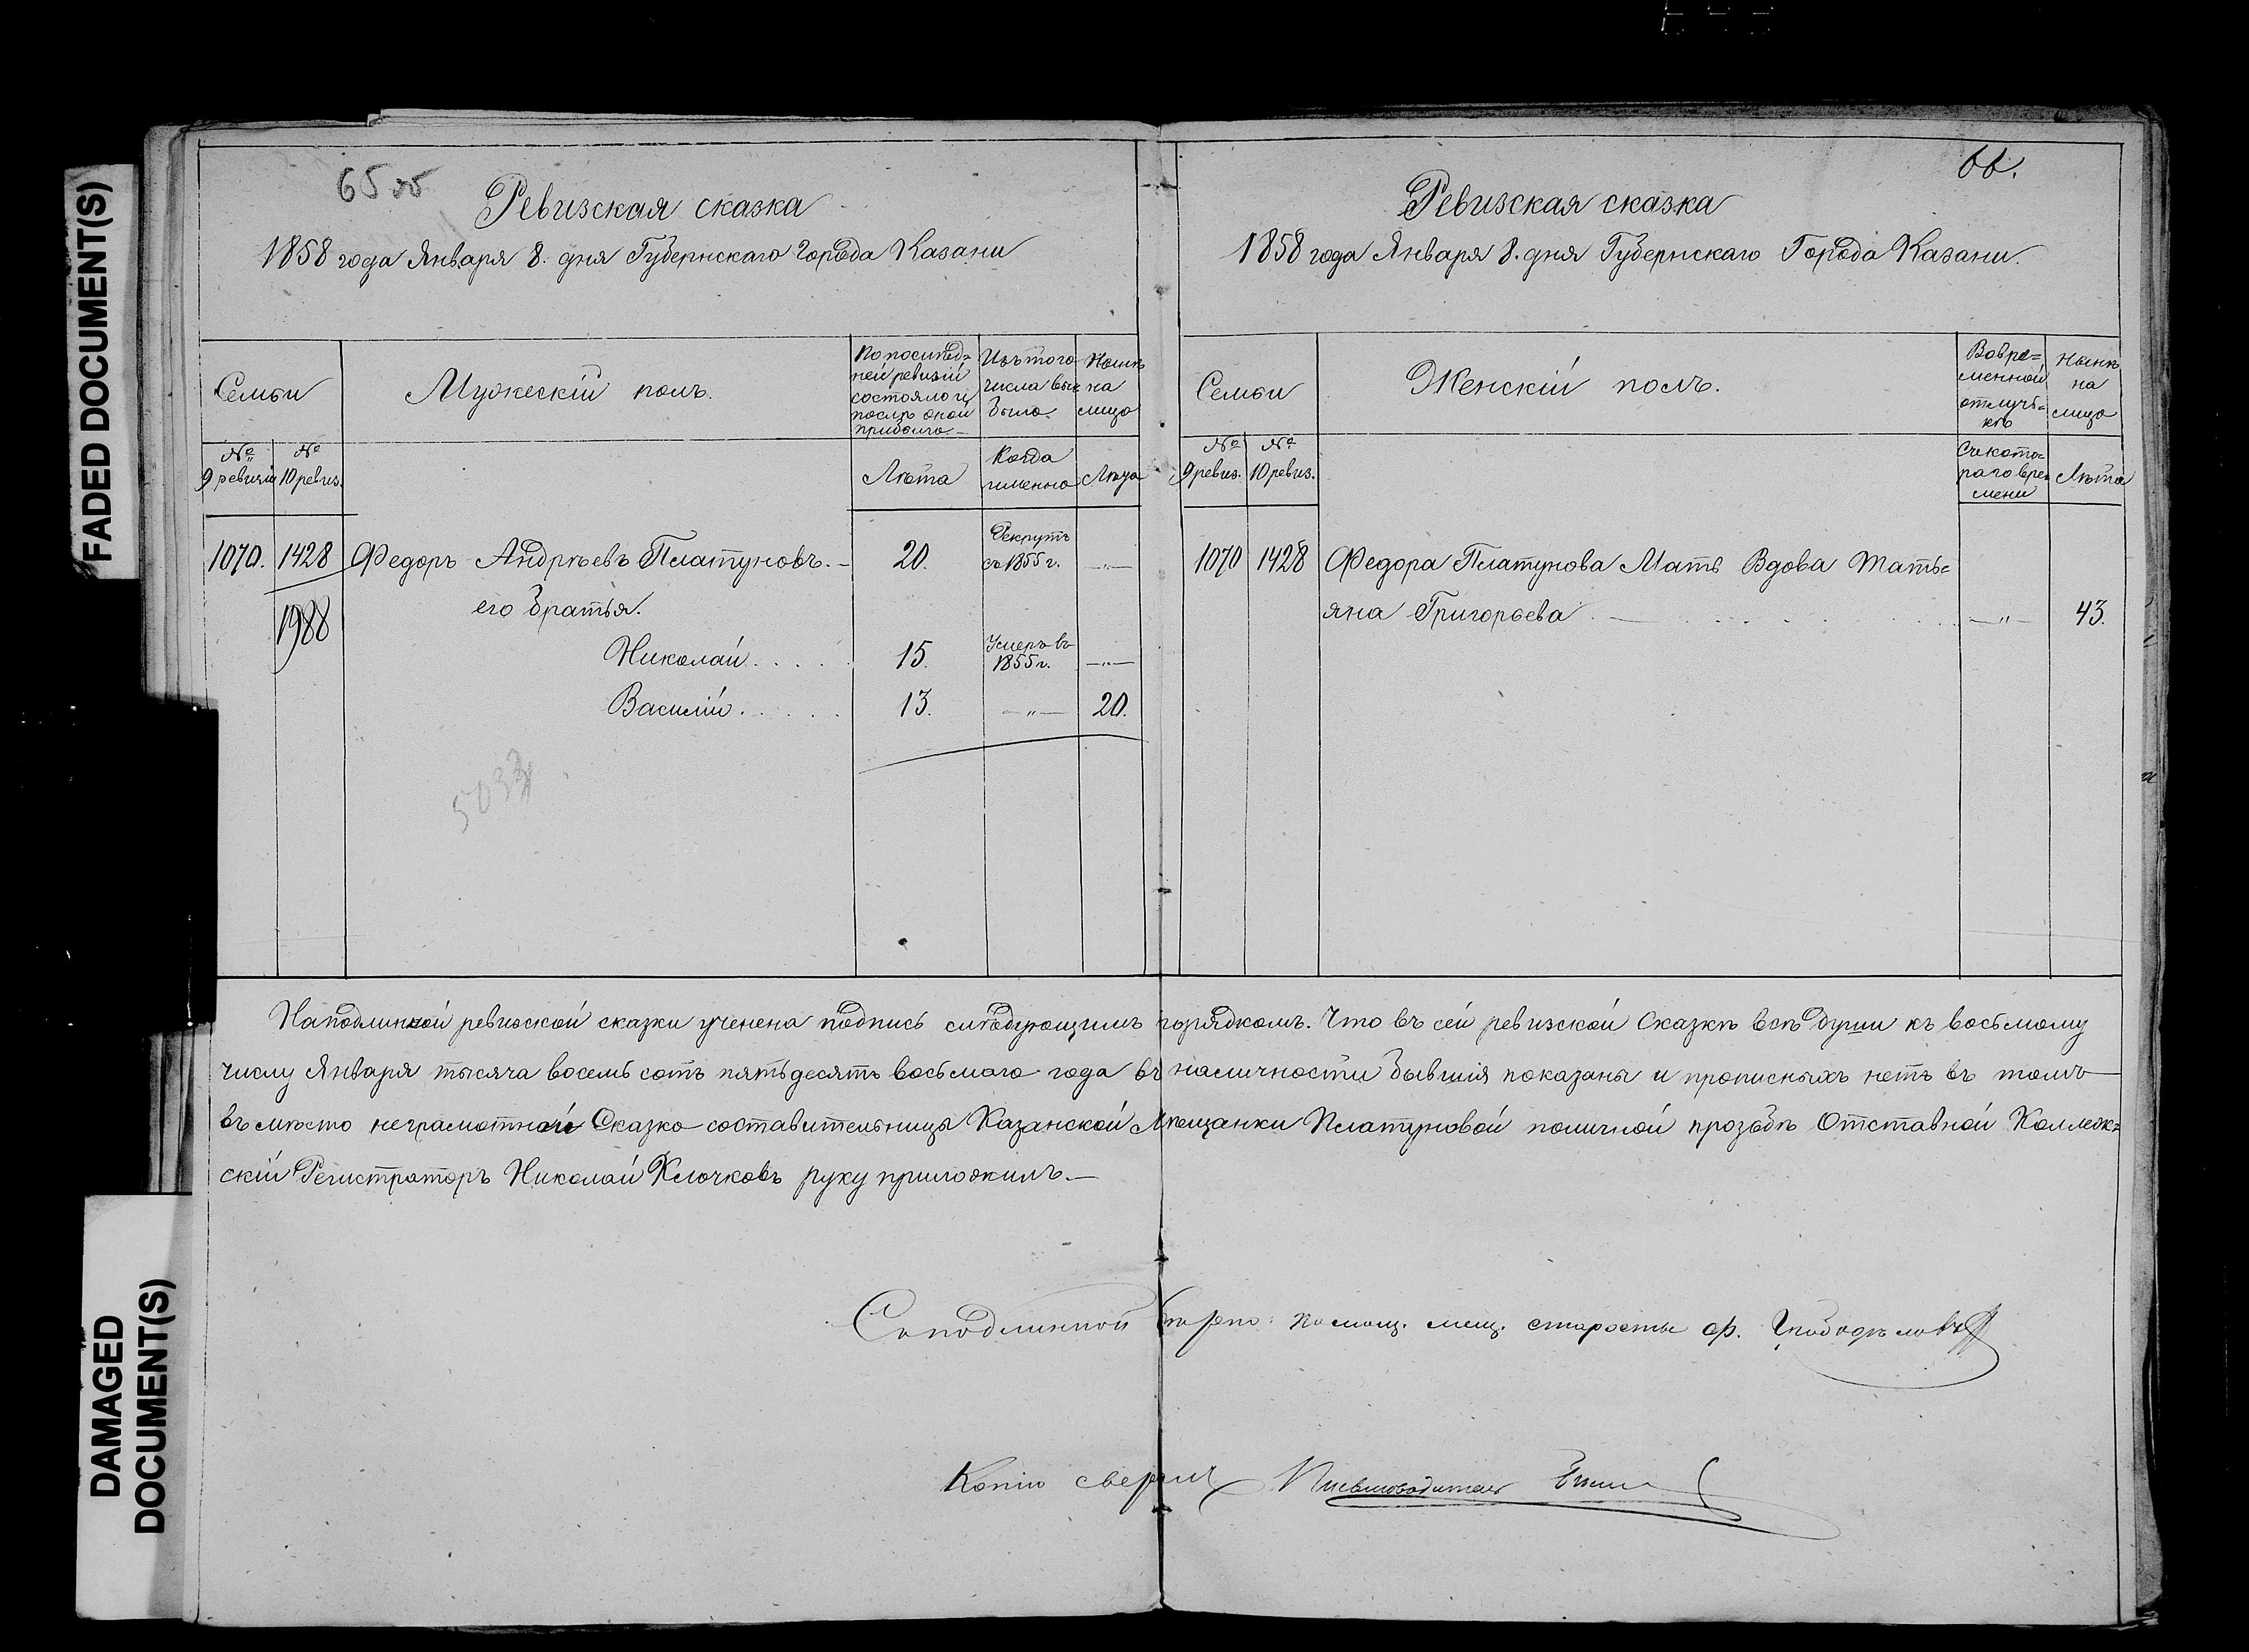 FADED DOCUMENT(S)
DAMAGED
DOCUMENT(S)
65 об
Ревизская сказка
1858 года Января 8. дня Губернскаго Города Казани
Семьи
Мужескій полъ.
По послѣд=
ней ревизіи
состояло и
послѣ оной
прибыло
Изъ того
числа вы
было
Нынѣ
на
лицо
№
9 ревизіи
№
10 ревиз.
Лѣта
Когда
именно
Лѣта
1070. 1428 Федоръ Андрѣевъ Платуновъ. 20. Рекрутъ
съ 1855 г. — " —
1988
его братья.
Николай . . . . 15. Умеръ въ
1855 г. — " —
Василій . . . . . 13. — " — 20.
5033
66.
Ревизская сказка
1858 года Января 8. дня Губернскаго Города Казани.
Семьи
Женскій полъ.
Вовре=
менной
отлуч=
кѣ
Нынѣ
на
лицо
№
9 ревиз.
№
10 ревиз.
Съ кото=
раго вре=
мени
Лѣта
1070 1428 Федора Платунова Мать Вдова Тать=
яна Григорьева — " — 43.
Наподлинной ревизской сказки учинена подпись слѣдующимъ порядкомъ. Что въ сей ревизской Сказкѣ всѣ души къ восьмому
числу Января тысяча восемь сотъ пятьдесятъ восьмаго года въ наличности бывшія показаны и прописныхъ нетъ въ томъ
въ мѣсто неграмотной Сказко составительницы Казанской Мѣщанки Платуновой поличной прозьбѣ Отставной Коллеж=
скій Регистраторъ Николай Ключковъ руку приложилъ. —
Съ подлинной вѣрно: помощ. мещ. старосты
Копію сверялъ Письмоводитель